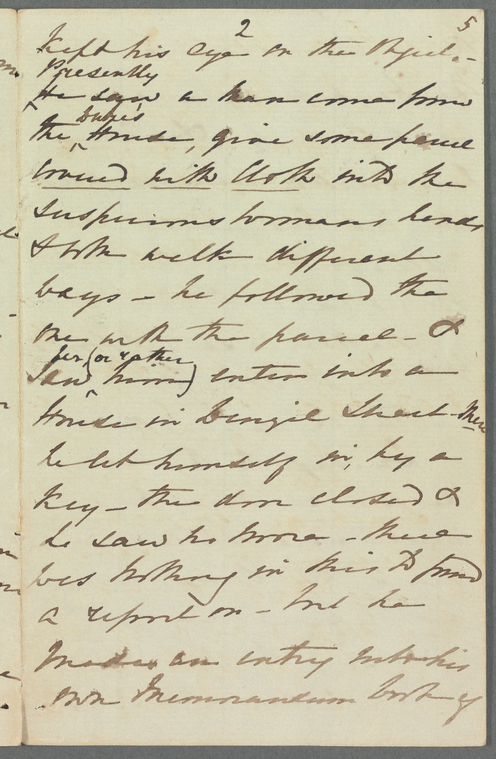 2 5
kept his eye on the Object -
Presently
He saw a man come from
Davis
the House, give some parcel
covered with Cloth into the
suspicious womans hands
& both walk different
ways - he followed the
one with the parcel - &
her (or rather
saw him) enter into a
house in Street - there
he let himself in, by a
key - the door closed &
he saw no more - there
was nothing in this to found
a report on - but he
made an entry into his
own Memorandum book of